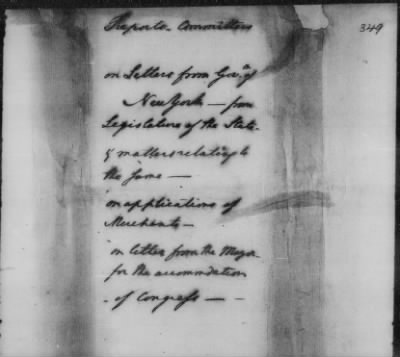 Reports Committees
349
on Letters from Govr. of
New York — from
Legislature of the State.
& matters relating to
the same —
on applications of
Merchants —
on letter from the Mayor
for the accommodation
of Congress —